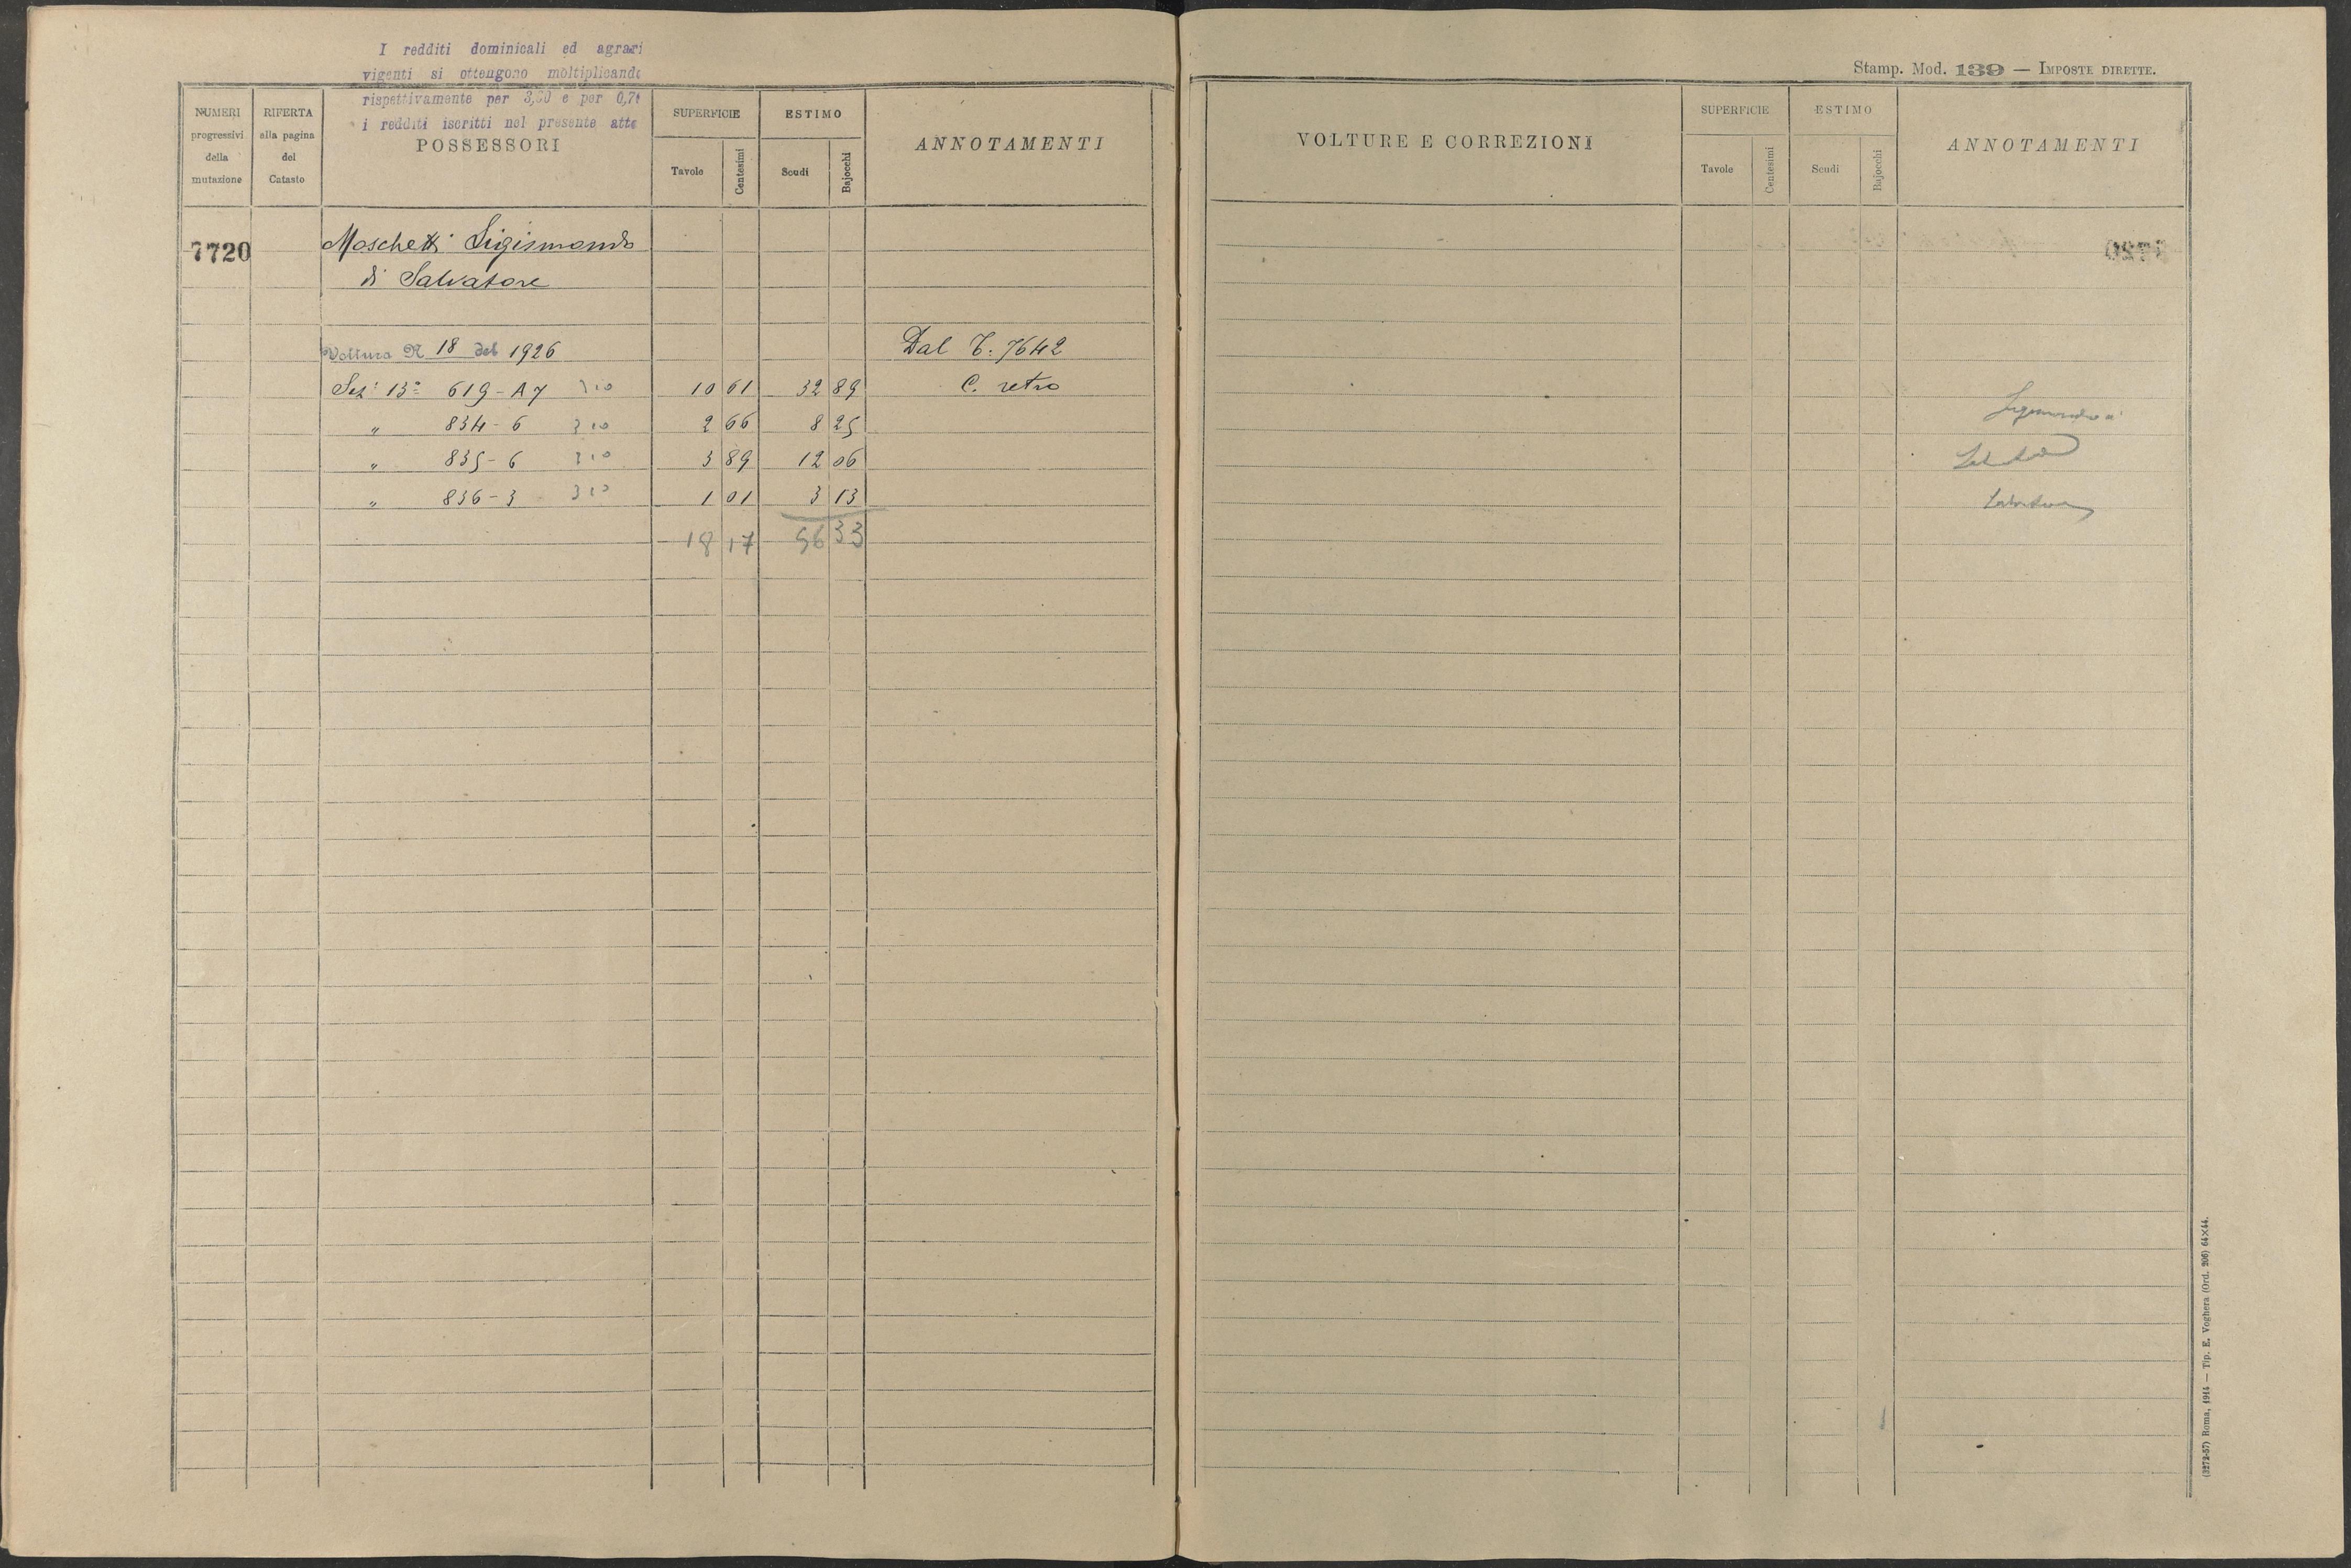 I redditi dominicali ed agrari
vigenti si ottengono moltiplicando
rispettivamente per 3,60 e per 0,7
i redditi iscritti nel presente atto
NUMERI progressivi della mutazione
RIFERTA alla pagina del Catasto
POSSESSORI
SUPERFICIE
Tavole Centesimi
ESTIMO
Scudi Bajocchi
ANNOTAMENTI
7720 Moschetti Sigismondo
di Salvatore
Voltura N 18 del 1926 Dal T. 7642
Sez. 13ª 619-A7 310 10 61 32 89 C. retro
" 834-6 310 2 66 8 25
" 835-6 310 3 89 12 06
" 836-3 310 1 01 3 13
18 17 56 33
Stamp. Mod. 139 — IMPOSTE DIRETTE.
VOLTURE E CORREZIONI
SUPERFICIE
Tavole Centesimi
ESTIMO
Scudi Bajocchi
ANNOTAMENTI
Salvatore
(3272-57) Roma, 1914 — Tip. E. Voghera (Ord. 206) 64×44.